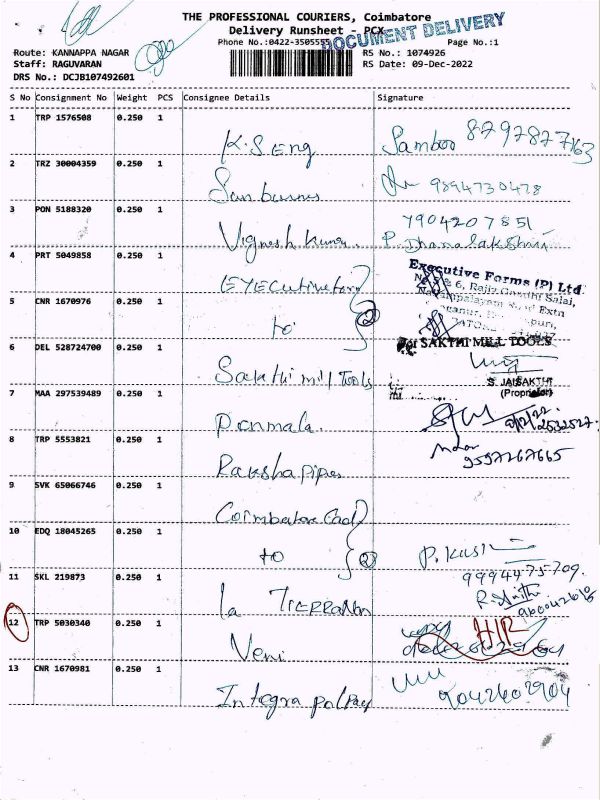 THE PROFESSIONAL COURIERS, Coimbatore
Delivery Runsheet - PCX
Phone No.:0422-35055 Page No.:1
DOCUMENT DELIVERY
Route: KANNAPPA NAGAR RS No.: 1074926
Staff: RAGUVARAN RS Date: 09-Dec-2022
DRS No.: DCJB107492601
S No Consignment No Weight PCS Consignee Details Signature
1 TRP 1576508 0.250 1
K.S Eng Samboo 8797877163
2 TRZ 30004359 0.250 1
Sunburns 9894730478
3 PON 5188320 0.250 1
Vignesh Kumar 7904207851
P. Dhanalakshmi
4 PRT 5049858 0.250 1
Executive Forms (P) Ltd.
& 6, Rajiv Gandhi Salai,
Extn
5 CNR 1670976 0.250 1
to 2
For SAKTHI MILL TOOLS
6 DEL 528724700 0.250 1
Sakthi mill Tools
S. JAISAKTHI
(Proprietor)
7 MAA 297539489 0.250 1
Ponmala 9/12/22
2532527
8 TRP 5553821 0.250 1
Raksha Pipes
9597267665
9 SVK 65066746 0.250 1
Coimbatore
10 EDQ 18045265 0.250 1
to 2 P. Kasi
9994475709.
11 SKL 219873 0.250 1
La
12 TRP 5030340 0.250 1
Veni
13 CNR 1670981 0.250 1
Integra 9042602904